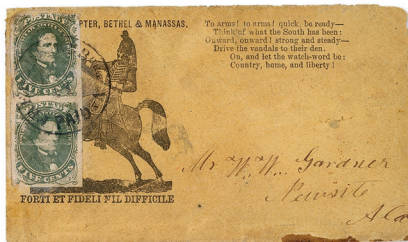 PTER, BETHEL & MANASSAS.
To arms! to arms! quick, be ready—
Think of what the South has been:
Onward, onward! strong and steady—
Drive the vandals to their den.
On, and let the watch-word be:
Country, home, and liberty!
FIVE CENTS
PAID
FIVE CENTS
FORTI ET FIDELI NIL DIFFICILE
Mr W. W. Gardner
Newsite
Ala